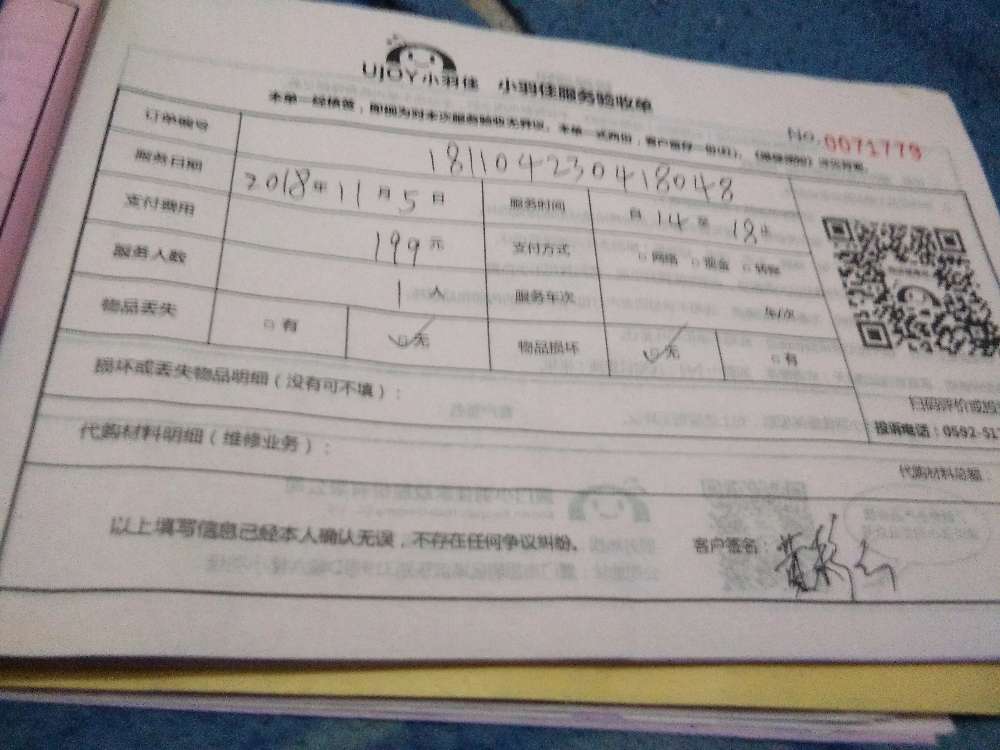 UJOY小羽佳 小羽佳服务验收单
本单一经核签，即视为对本次服务验收无异议。本单一式两份，客户留存一份
No. 0071779
订单编号 181104230418048
服务日期 2018年11月5日 服务时间 自14至18止
支付费用 199元 支付方式 □网络 □现金 □转账
服务人数 1人 服务车次 车/次
物品丢失 □有 ☑无 物品损坏 ☑无 □有
损坏或丢失物品明细（没有可不填）：
扫码评价或投
投诉电话：0592-51
代购材料明细（维修业务）：
代购材料总额：
以上填写信息已经本人确认无误，不存在任何争议纠纷。 客户签名：